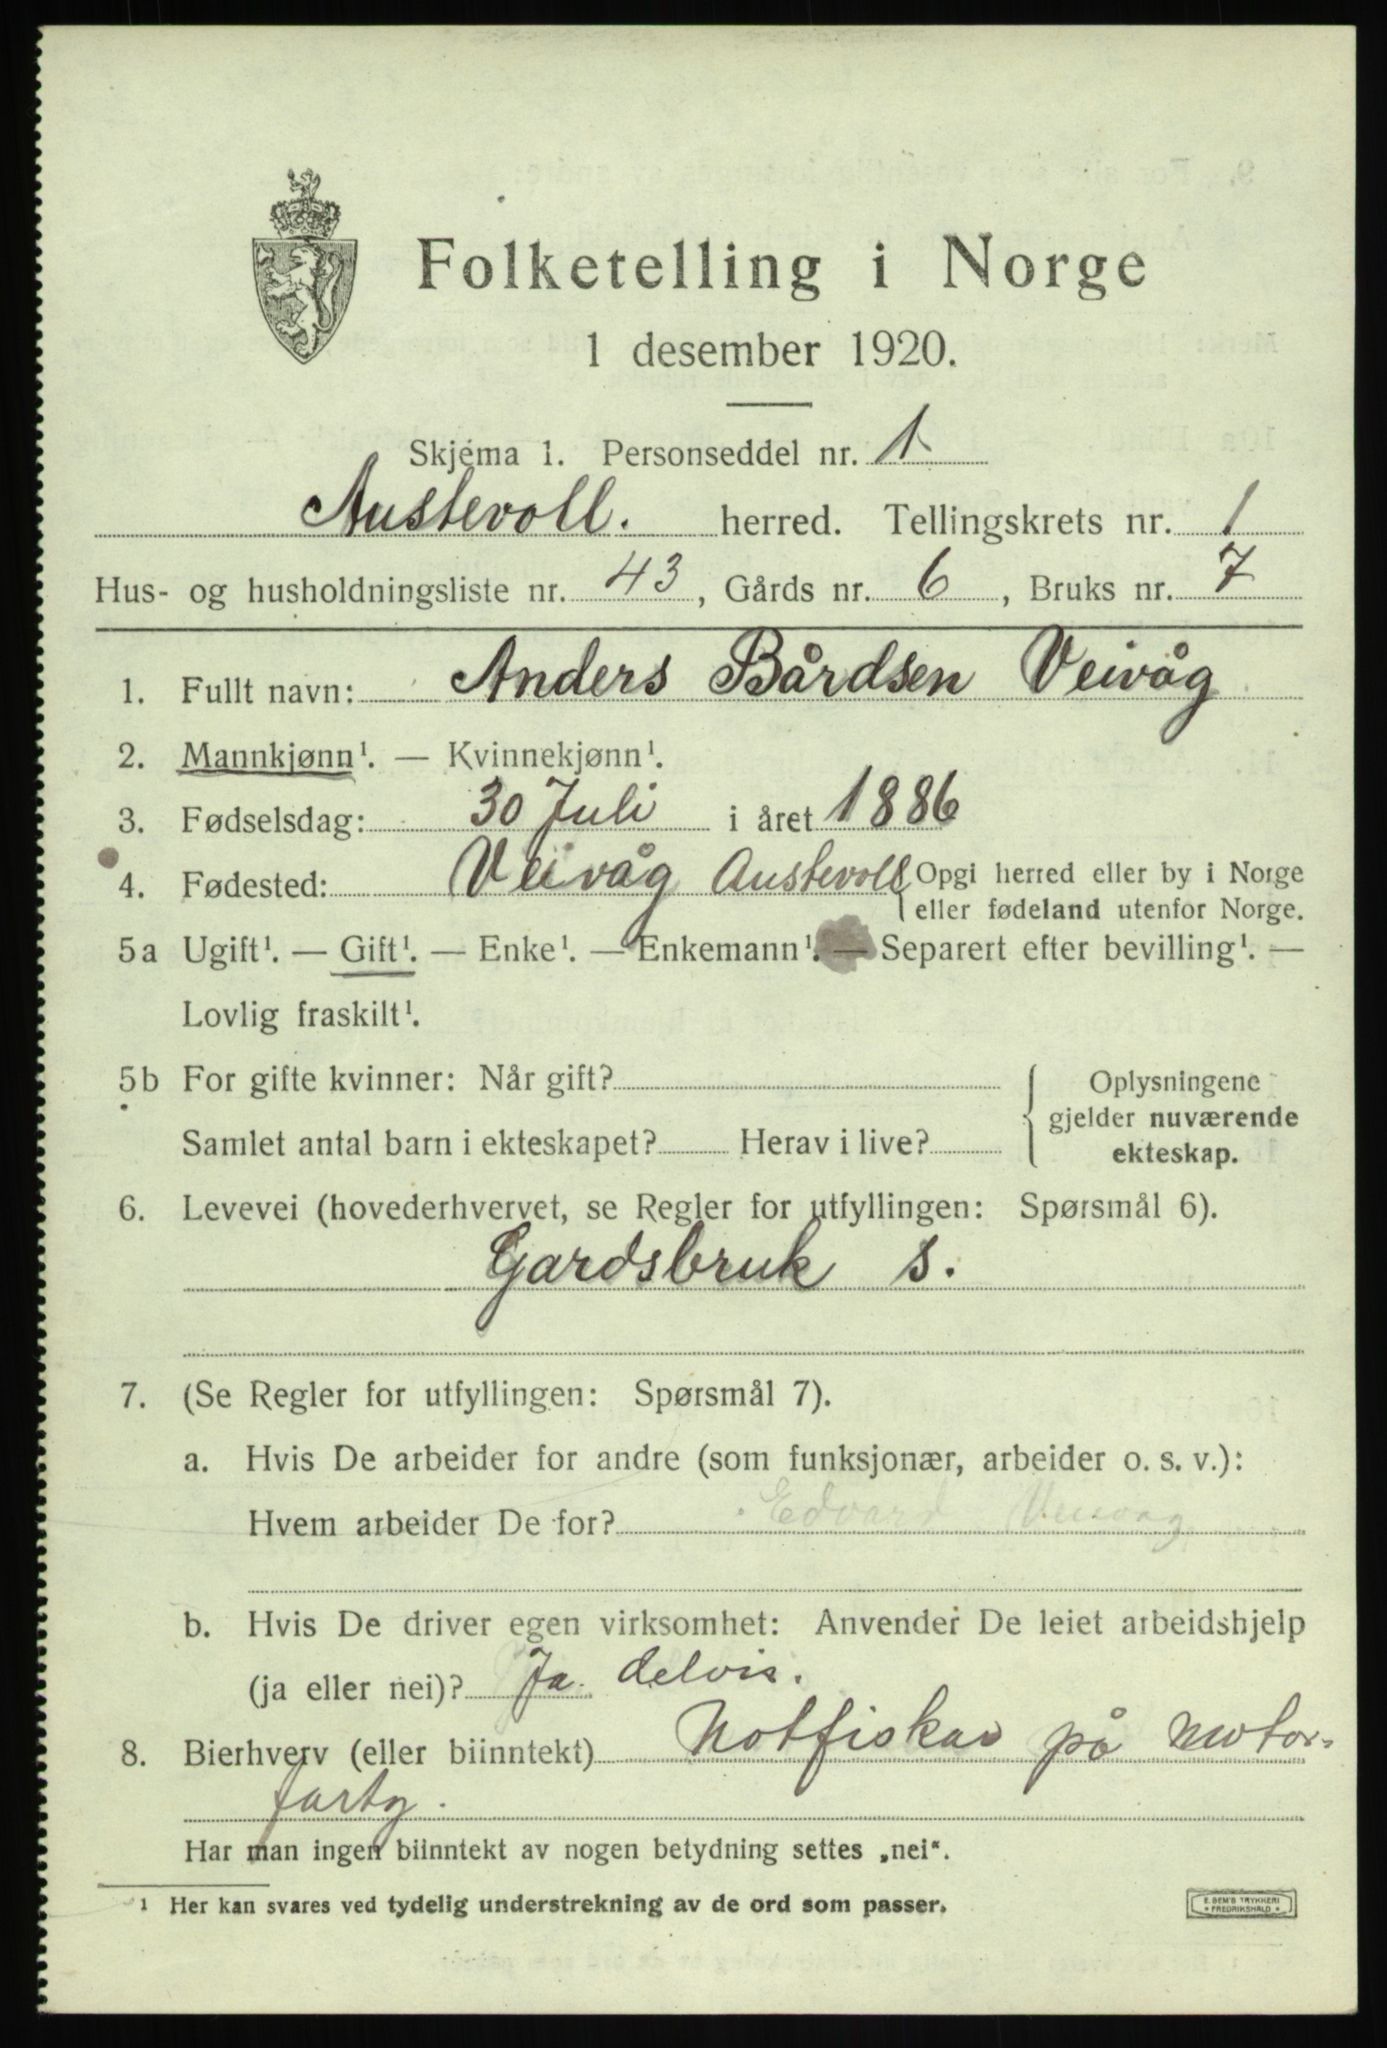 Folketelling i Norge
1 desember 1920.
Skjema 1. Personseddel nr. 1
Austevoll. herred. Tellingskrets nr. 1
Hus- og husholdningsliste nr. 43, Gårds nr. 6, Bruks nr. 7
1. Fullt navn: Anders Bårdsen Veivåg
2. Mannkjønn¹. — Kvinnekjønn¹.
3. Fødselsdag: 30 Juli i året 1886
4. Fødested: Veivåg Austevoll { Opgi herred eller by i Norge
eller fødeland utenfor Norge.
5a Ugift¹. — Gift¹. — Enke¹. — Enkemann¹. — Separert efter bevilling¹. —
Lovlig fraskilt¹.
5b For gifte kvinner: Når gift?
Samlet antal barn i ekteskapet? Herav i live?
{ Oplysningene
gjelder nuværende
ekteskap.
6. Levevei (hovederhvervet, se Regler for utfyllingen: Spørsmål 6).
Gardsbruk s.
7. (Se Regler for utfyllingen: Spørsmål 7).
a. Hvis De arbeider for andre (som funksjonær, arbeider o. s. v.):
Hvem arbeider De for? Edvard Veivag
b. Hvis De driver egen virksomhet: Anvender De leiet arbeidshjelp
(ja eller nei)? Ja. delvis.
8. Bierhverv (eller biinntekt) Notfiskar på Motor-
farty.
Har man ingen biinntekt av nogen betydning settes „nei“.
¹ Her kan svares ved tydelig understrekning av de ord som passer.
E. SEM'S TRYKKERI
FREDRIKSHALD